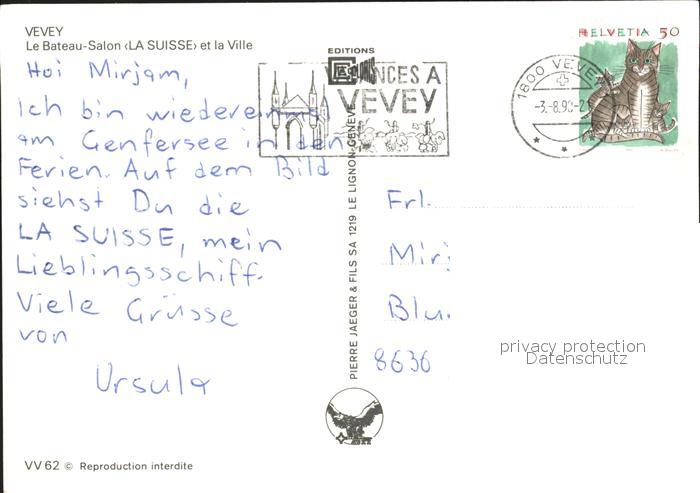 VEVEY
Le Bateau-Salon ‹LA SUISSE› et la Ville
Hoi Mirjam,
Ich bin wiedereinmal
am Genfersee in den
Ferien. Auf dem Bild
siehst Du die
LA SUISSE, mein
Lieblingsschiff.
Viele Grüsse
von
Ursula
VV 62 © Reproduction interdite
EDITIONS
PIERRE JAEGER & FILS SA 1219 LE LIGNON-GENÈVE
VACANCES A
VEVEY
1800 VEVEY
-3.-8.90-21
HELVETIA 50
Frl.
Mirj
Blu
8636
privacy protection
Datenschutz